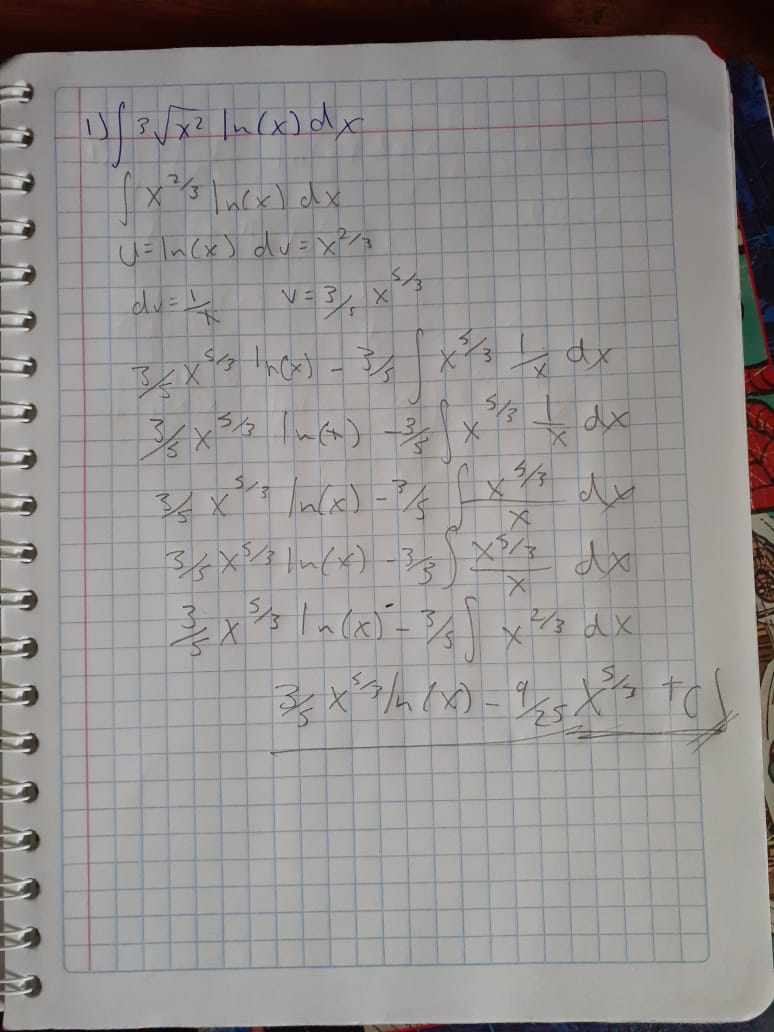 1) ∫ 3√x² ln(x) dx
∫ x^2/3 ln(x) dx
u=ln(x) dv=x^2/3
dv=1/x v=3/5 x^5/3
3/5 x^5/3 ln(x) - 3/5 ∫ x^5/3 1/x dx
3/5 x^5/3 ln(x) - 3/5 ∫ x^5/3 1/x dx
3/5 x^5/3 ln(x) - 3/5 ∫ x^5/3/x dx
3/5 x^5/3 ln(x) - 3/5 ∫ x^5/3/x dx
3/5 x^5/3 ln(x) - 3/5 ∫ x^2/3 dx
3/5 x^5/3 ln(x) - 9/25 x^5/3 + C